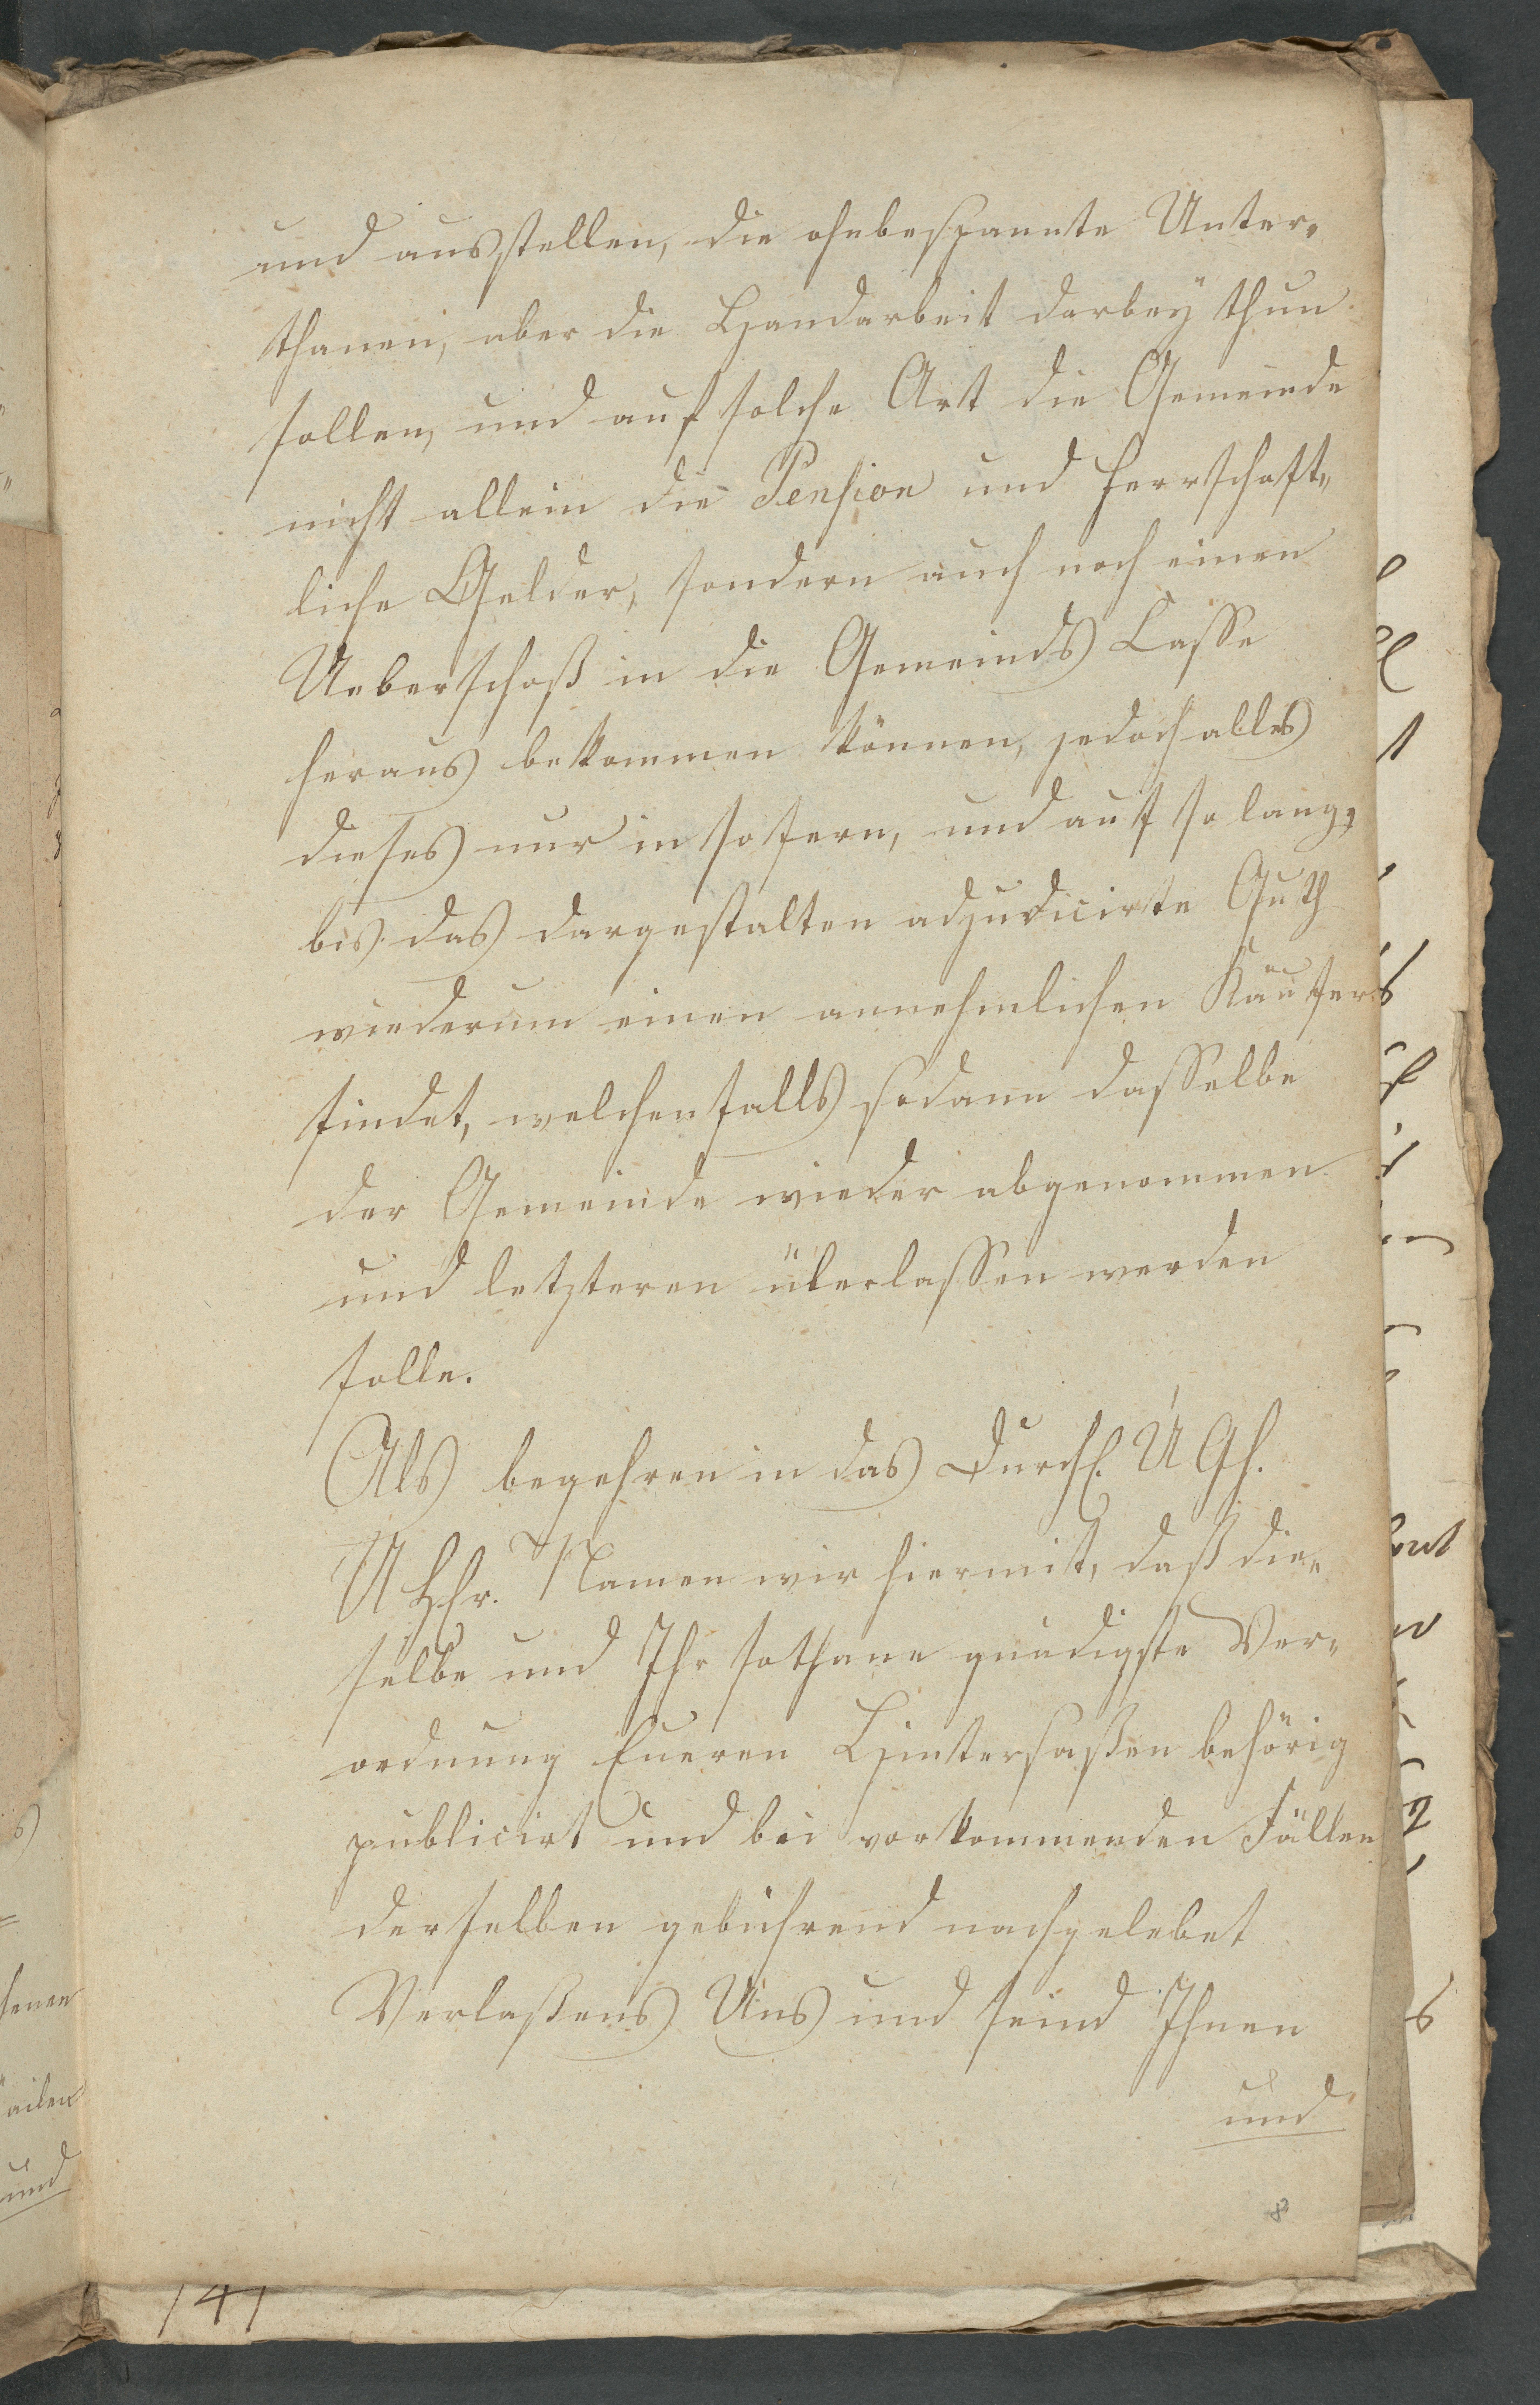 und ausstellen, die ohnbespannte Unter„
thanen, aber die Handarbeit darbey thun
sollen, und auf solche Art die Gemeinde
nicht allein die Pension und herrschaft„
liche Gelder, sondern auch noch einen
Ueberschoß in die Gemeinds Casse
heraus bekommen können, jedoch alles
dieses nur in sofern, und auf so lang,
bis das dergestalten adjudicirte Guth
wiederum einen annehmlichen Käufer
findet, welchenfalls sodann dasselbe
der Gemeinde wieder abgenommen
und letzteren überlassen werden
solle.
Als begehren in das Durchl. U Gh.
U Hhr. Namen wir hiermit, daß die„
selbe und Ihr sothane gnädigste Ver„
ordnung Eueren Hintersaßen behörig
publicirt und bei vorkommenden Fällen
derselben gebührend nachgelebet
Verlaßens Uns und seind Ihnen
und
141